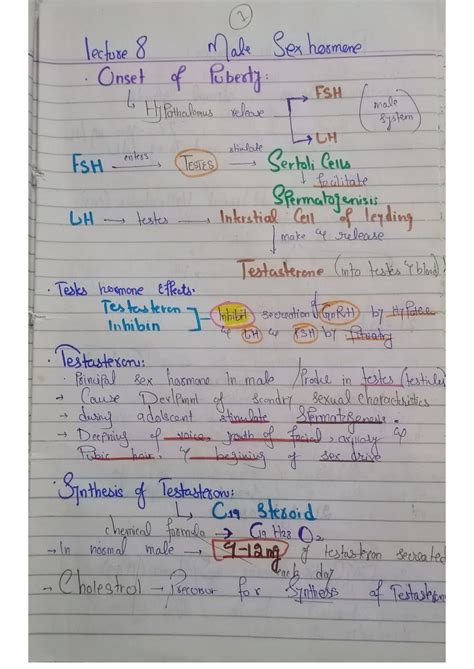 1
lecture 8 Male Sex hormone
· Onset of Puberty:
↳ Hypothalamus release → FSH (male system)
→ LH
FSH enters → Testes stimulate → Sertoli Cells
↓ facilitate
Spermatogenisis
LH → testes → Interstial Cell of leyding
↓ make & release
Testasterone (into testes & blood)
· Testis hormone Effects.
Testasteron
Inhibin
Inhibit secreation of GnRH by
& LH & FSH by Pituatry
· Testasteron:
· Principal sex hormone In male /Produe in testes (testicles
→ Cause Devlpmnt of scondry sexual characteristics
→ during adolescent stimulate Spermatogenesis.
→ Deepning of voice, growth of facial, axyllary &
Pubic hair, & begining of sex drive
· Synthesis of Testasteron:
↳ C19 Steroid
chemical formula → C19 H28 O2
→ In normal male → 4-12 ng of testasteron secreated
each day
→ Cholestrol → Precursor for Synthesis of Testasteron